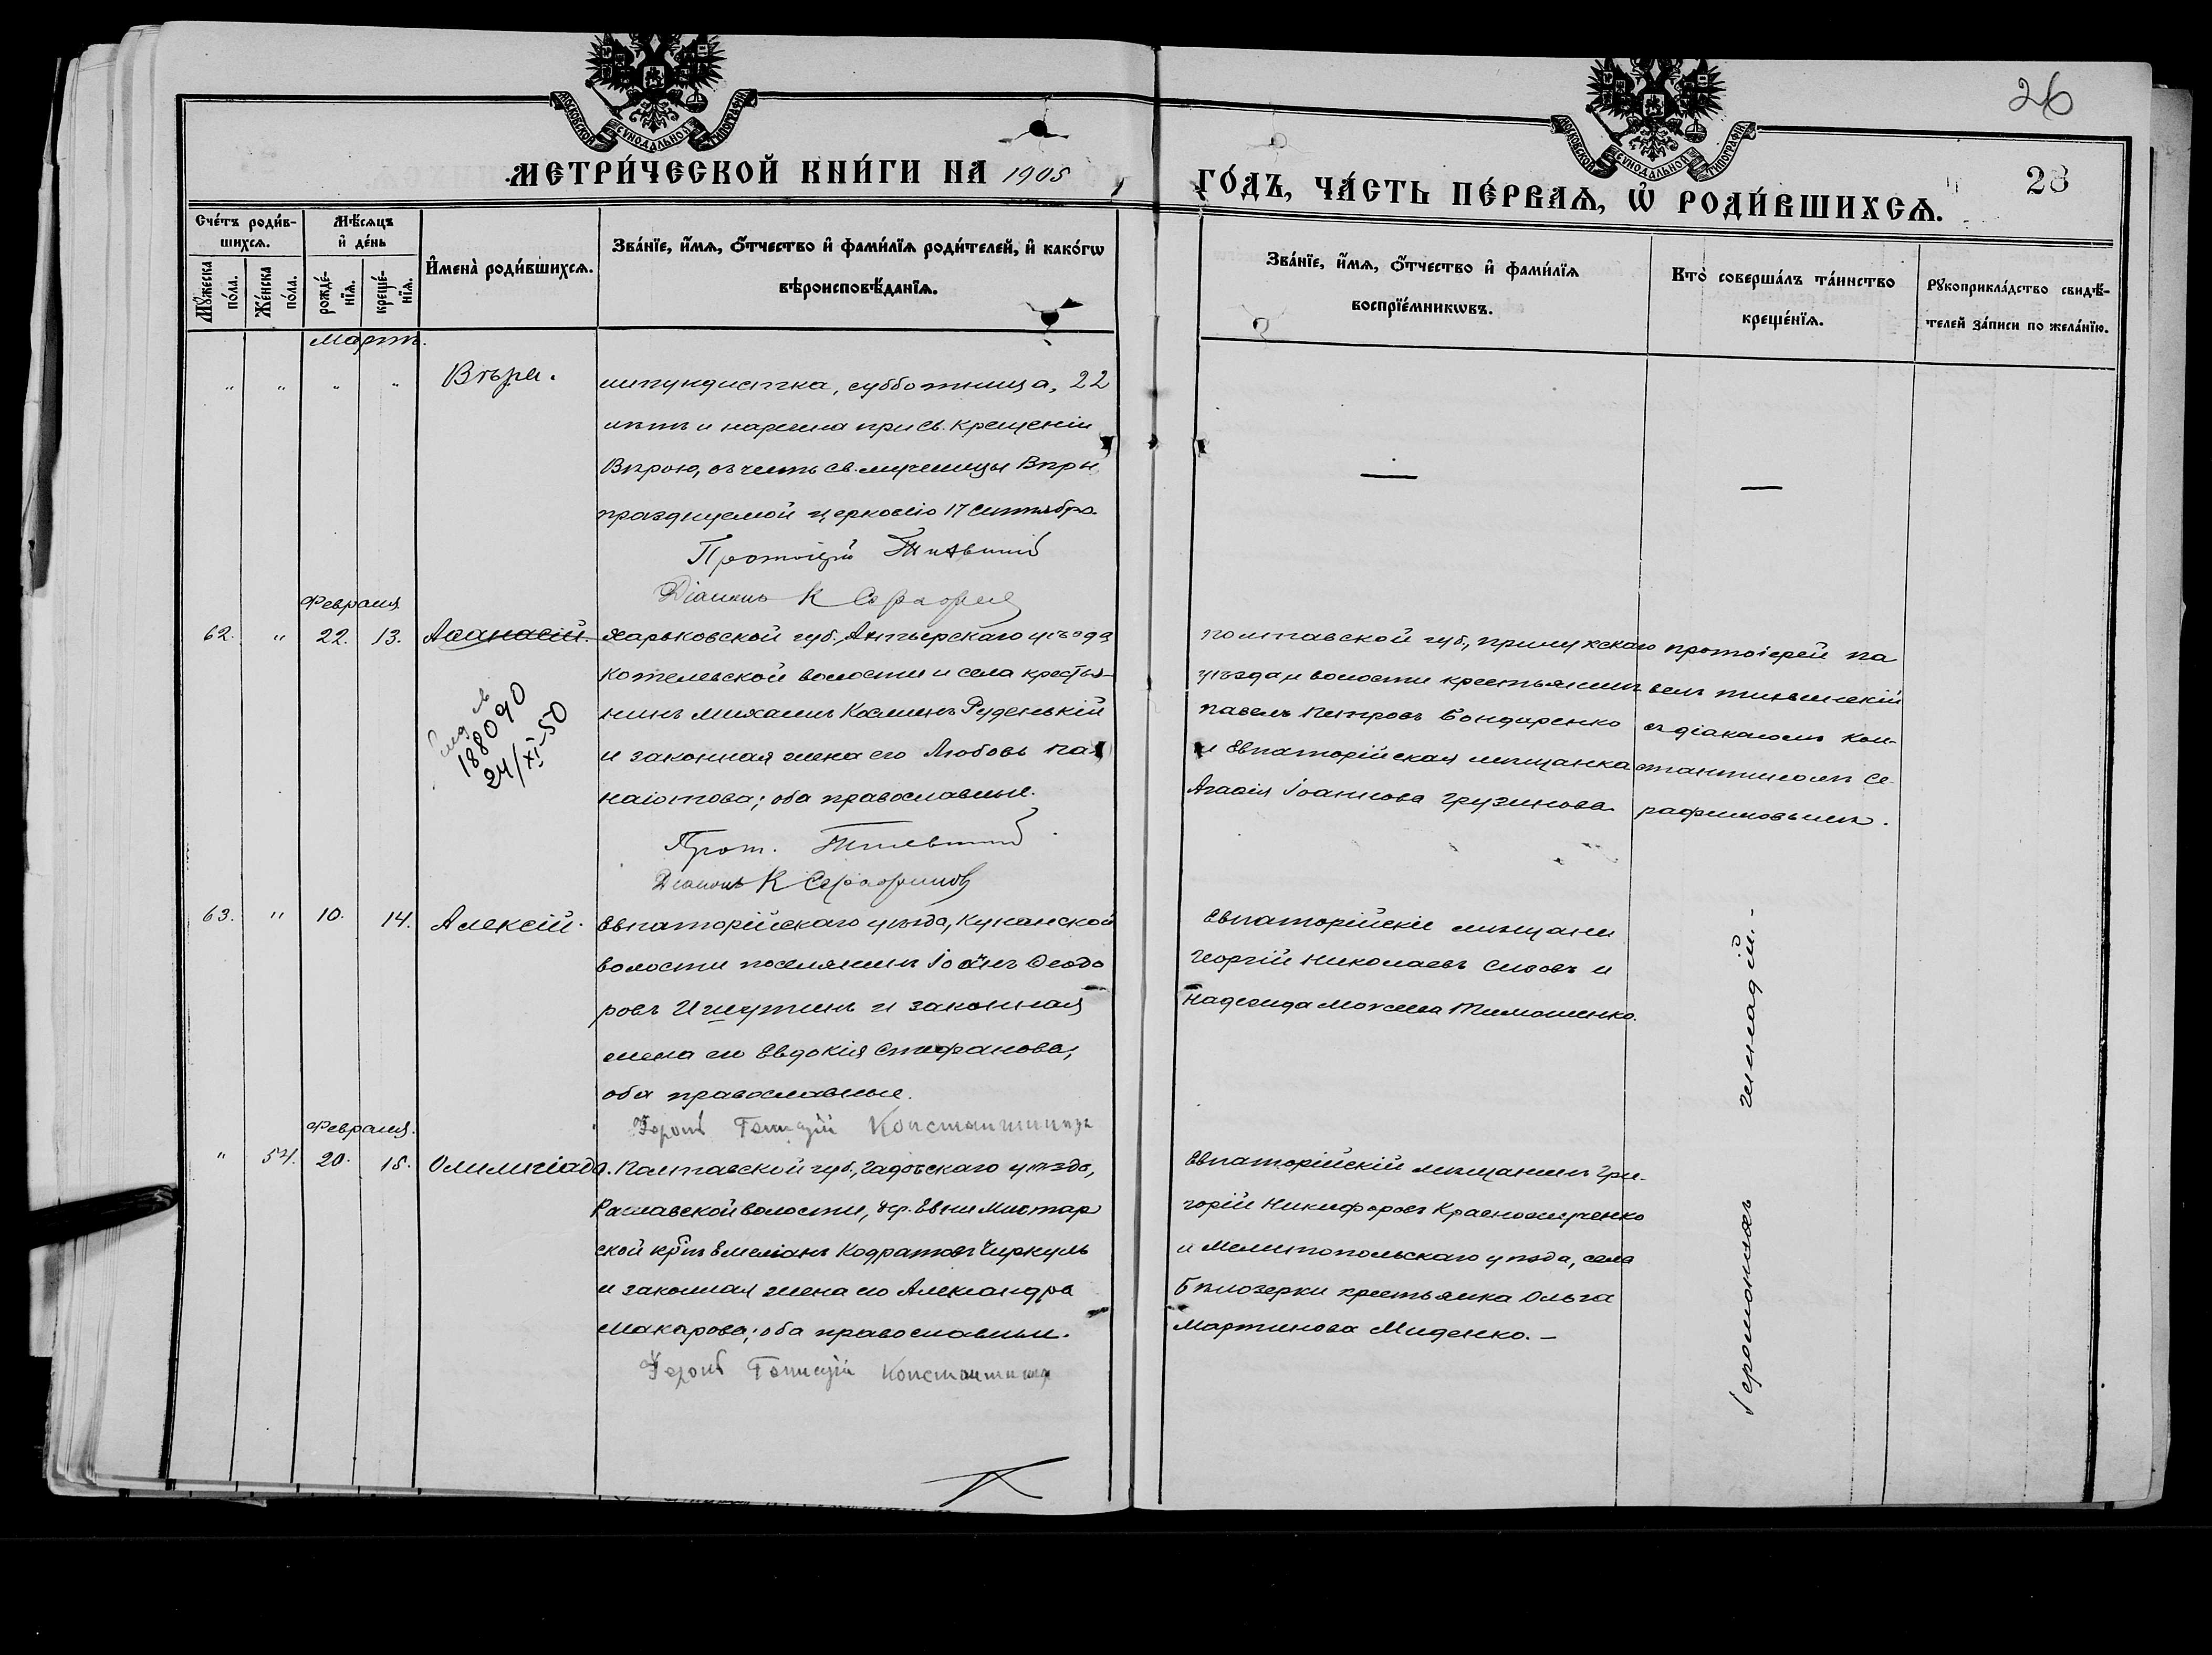 26
МОСКОВСКОЙ СѴНОДАЛЬНОЙ ТИПОГРАФІИ
МОСКОВСКОЙ СѴНОДАЛЬНОЙ ТИПОГРАФІИ
МЕТРИ́ЧЕСКОЙ КНИ́ГИ НА 1905
ГО́ДЪ, ЧА́СТЬ ПЕ́РВАѦ, Ѽ РОДИ́ВШИХСѦ.
28
Сче́тъ роди́в-
шихсѧ.
Мѣ́сѧцъ
и҆ де́нь
Мꙋ́жеска
по́ла.
Же́нска
по́ла.
рожде́-
нїѧ.
креще́-
нїѧ.
И҆мена̀ роди́вшихсѧ.
Зва́нїе, и҆́мѧ, ѻ҆́тчество и҆ фами́лїѧ роди́телей, и҆ како́гѡ
вѣроисповѣ́данїѧ.
Зва́нїе, и҆́мѧ, ѻ҆́тчество и҆ фами́лїѧ
воспрїе́мникѡвъ.
Кто̀ соверша́лъ та́инство
креще́нїѧ.
Рꙋкоприкла́дство свидѣ́-
телей за́писи по жела́нїю.
Мартъ.
" " " " Вѣра.
субботница, 22
лѣтъ и наречена при св. крещеніи
Вѣрою, въ честь св. мученицы Вѣры
празднуемой церковію 17 Сентября.
Протоіерей
Діаконъ К Серафимовъ
Февраля
62. " 22. 13. Аѳанасій.
Харьковской губ., Ахтырскаго уѣзда
Котелевской волости и села крестья-
нинъ Михаилъ Косминъ Руденькій
и законная жена его Любовь Па-
наіотова; оба православные.
188090
24/XI-50
Прот.
Діаконъ К Серафимовъ
Полтавской губ., Прилукскаго
уѣзда и волости крестьянинъ
Павелъ Петровъ Бондаренко
и Евпаторійская мѣщанка
Агаѳія Іоаннова Грузинова
протоіерей Па
велъ Тиньшскій
съ діакономъ Кон-
стантиномъ Се-
рафимовымъ.
63. " 10. 14. Алексій.
Евпаторійскаго уѣзда, Куманской
волости поселянинъ Іоаннъ Ѳеодо
ровъ Ишутинъ и законная
жена его Евдокія Стефанова;
оба православные.
Іером Геннадій Константинидъ
Евпаторійскіе мѣщане
Георгій Николаевъ Сизовъ и
Надежда Моѵсеева Тимошенко.
Іеромонахъ Геннадій.-
Февраля.
" 54. 20. 15. Олимпіада.
Полтавской губ., Гадячскаго уѣзда,
волости, дер.
ской кр-нъ Емеліанъ Кодратовъ Чиркуль
и законная жена его Александра
Макарова; оба православные.
Іером Геннадій Константинидъ
Евпаторійскій мѣщанинъ Гри-
горій Никифоровъ Красножученко
и Мелитопольскаго уѣзда, села
Бѣлозерки крестьянка Ольга
Мартинова Миденко.-